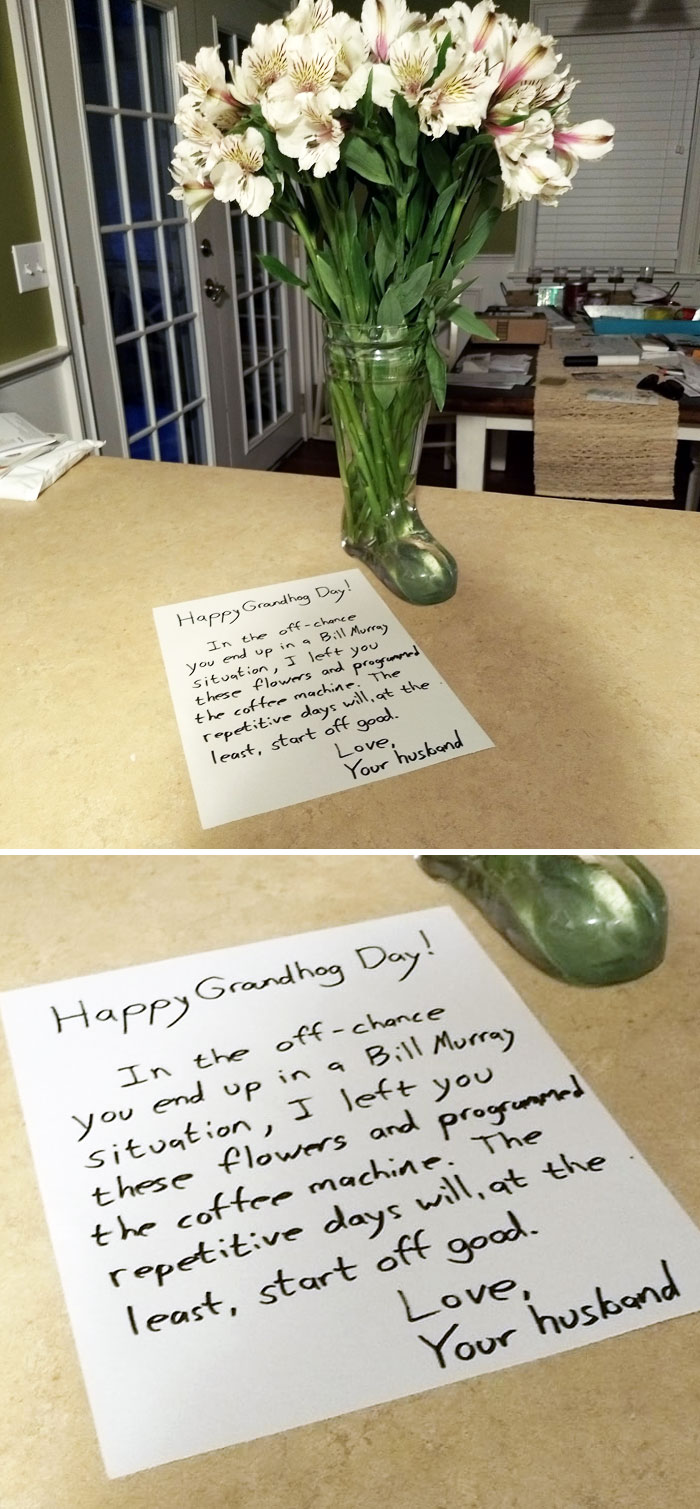 Happy Grandhog Day!
In the off-chance
you end up in a Bill Murray
situation, I left you
these flowers and programmed
the coffee machine. The
repetitive days will, at the
least, start off good.
Love,
Your husband
Happy Grandhog Day!
In the off-chance
you end up in a Bill Murray
situation, I left you
these flowers and programmed
the coffee machine. The
repetitive days will, at the
least, start off good.
Love,
Your husband